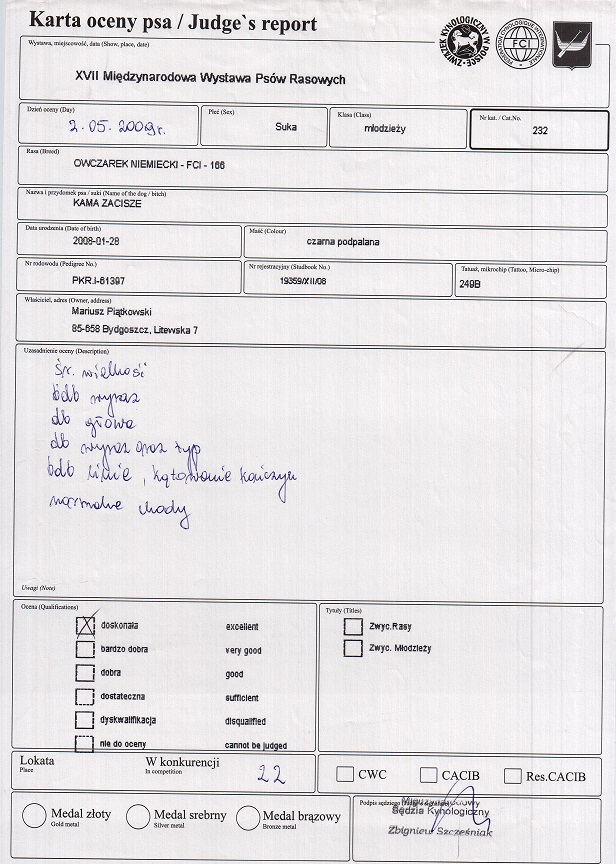 Karta oceny psa / Judge`s report
ZWIĄZEK KYNOLOGICZNY W POLSCE
FEDERATION CYNOLOGIQUE INTERNATIONALE
FCI
Wystawa, miejscowość, data (Show, place, date)
XVII Międzynarodowa Wystawa Psów Rasowych
Dzień oceny (Day)
2.05.2009r.
Płeć (Sex)
Suka
Klasa (Class)
młodzieży
Nr kat. / Cat.No.
232
Rasa (Breed)
OWCZAREK NIEMIECKI - FCI - 166
Nazwa i przydomek psa / suki (Name of the dog / bitch)
KAMA ZACISZE
Data urodzenia (Date of birth)
2008-01-28
Maść (Colour)
czarna podpalana
Nr rodowodu (Pedigree No.)
PKR.I-61397
Nr rejestracyjny (Studbook No.)
19359/XII/08
Tatuaż, mikrochip (Tattoo, Micro-chip)
249B
Właściciel, adres (Owner, address)
Mariusz Piątkowski
85-658 Bydgoszcz, Litewska 7
Uzasadnienie oceny (Description)
śr. wielkość
bdb wyraz
db głowa
db wyraz oraz typ
bdb linie, kątowanie kończyn
normalne chody
Uwagi (Note)
Ocena (Qualifications)
doskonała excellent
bardzo dobra very good
dobra good
dostateczna sufficient
dyskwalifikacja disqualified
nie do oceny cannot be judged
Tytuły (Titles)
Zwyc.Rasy
Zwyc. Młodzieży
Lokata
Place
W konkurencji
In competition
22
CWC
CACIB
Res.CACIB
Medal złoty
Gold medal
Medal srebrny
Silver medal
Medal brązowy
Bronze medal
Podpis sędziego
Sędzia Kynologiczny
Zbigniew Szcześniak